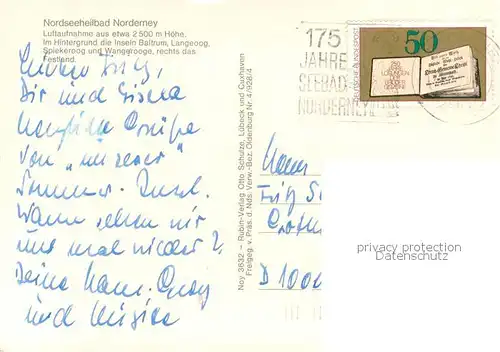 Nordseeheilbad Norderney
Luftaufnahme aus etwa 2 500 m Höhe.
Im Hintergrund die Inseln Baltrum, Langeoog,
Spiekeroog und Wangerooge, rechts das
Festland.
175
JAHRE
SEEBAD
NORDERNEY
50
DEUTSCHE BUNDESPOST
DIE
LOSUNGEN
Lieber Fritz,
Dir und Gisela
herzliche Grüße
von "unserer"
Sommer-Insel.
Wann sehen wir
uns mal wieder?
Deine
und
Ney 3632 – Rubin-Verlag Otto Schulze, Lübeck und Cuxhaven
Freigeg. v. Präs. d. Nds. Verw.-Bez. Oldenburg Nr 4/926/4
Herrn
Fritz
D 1000
privacy protection
Datenschutz